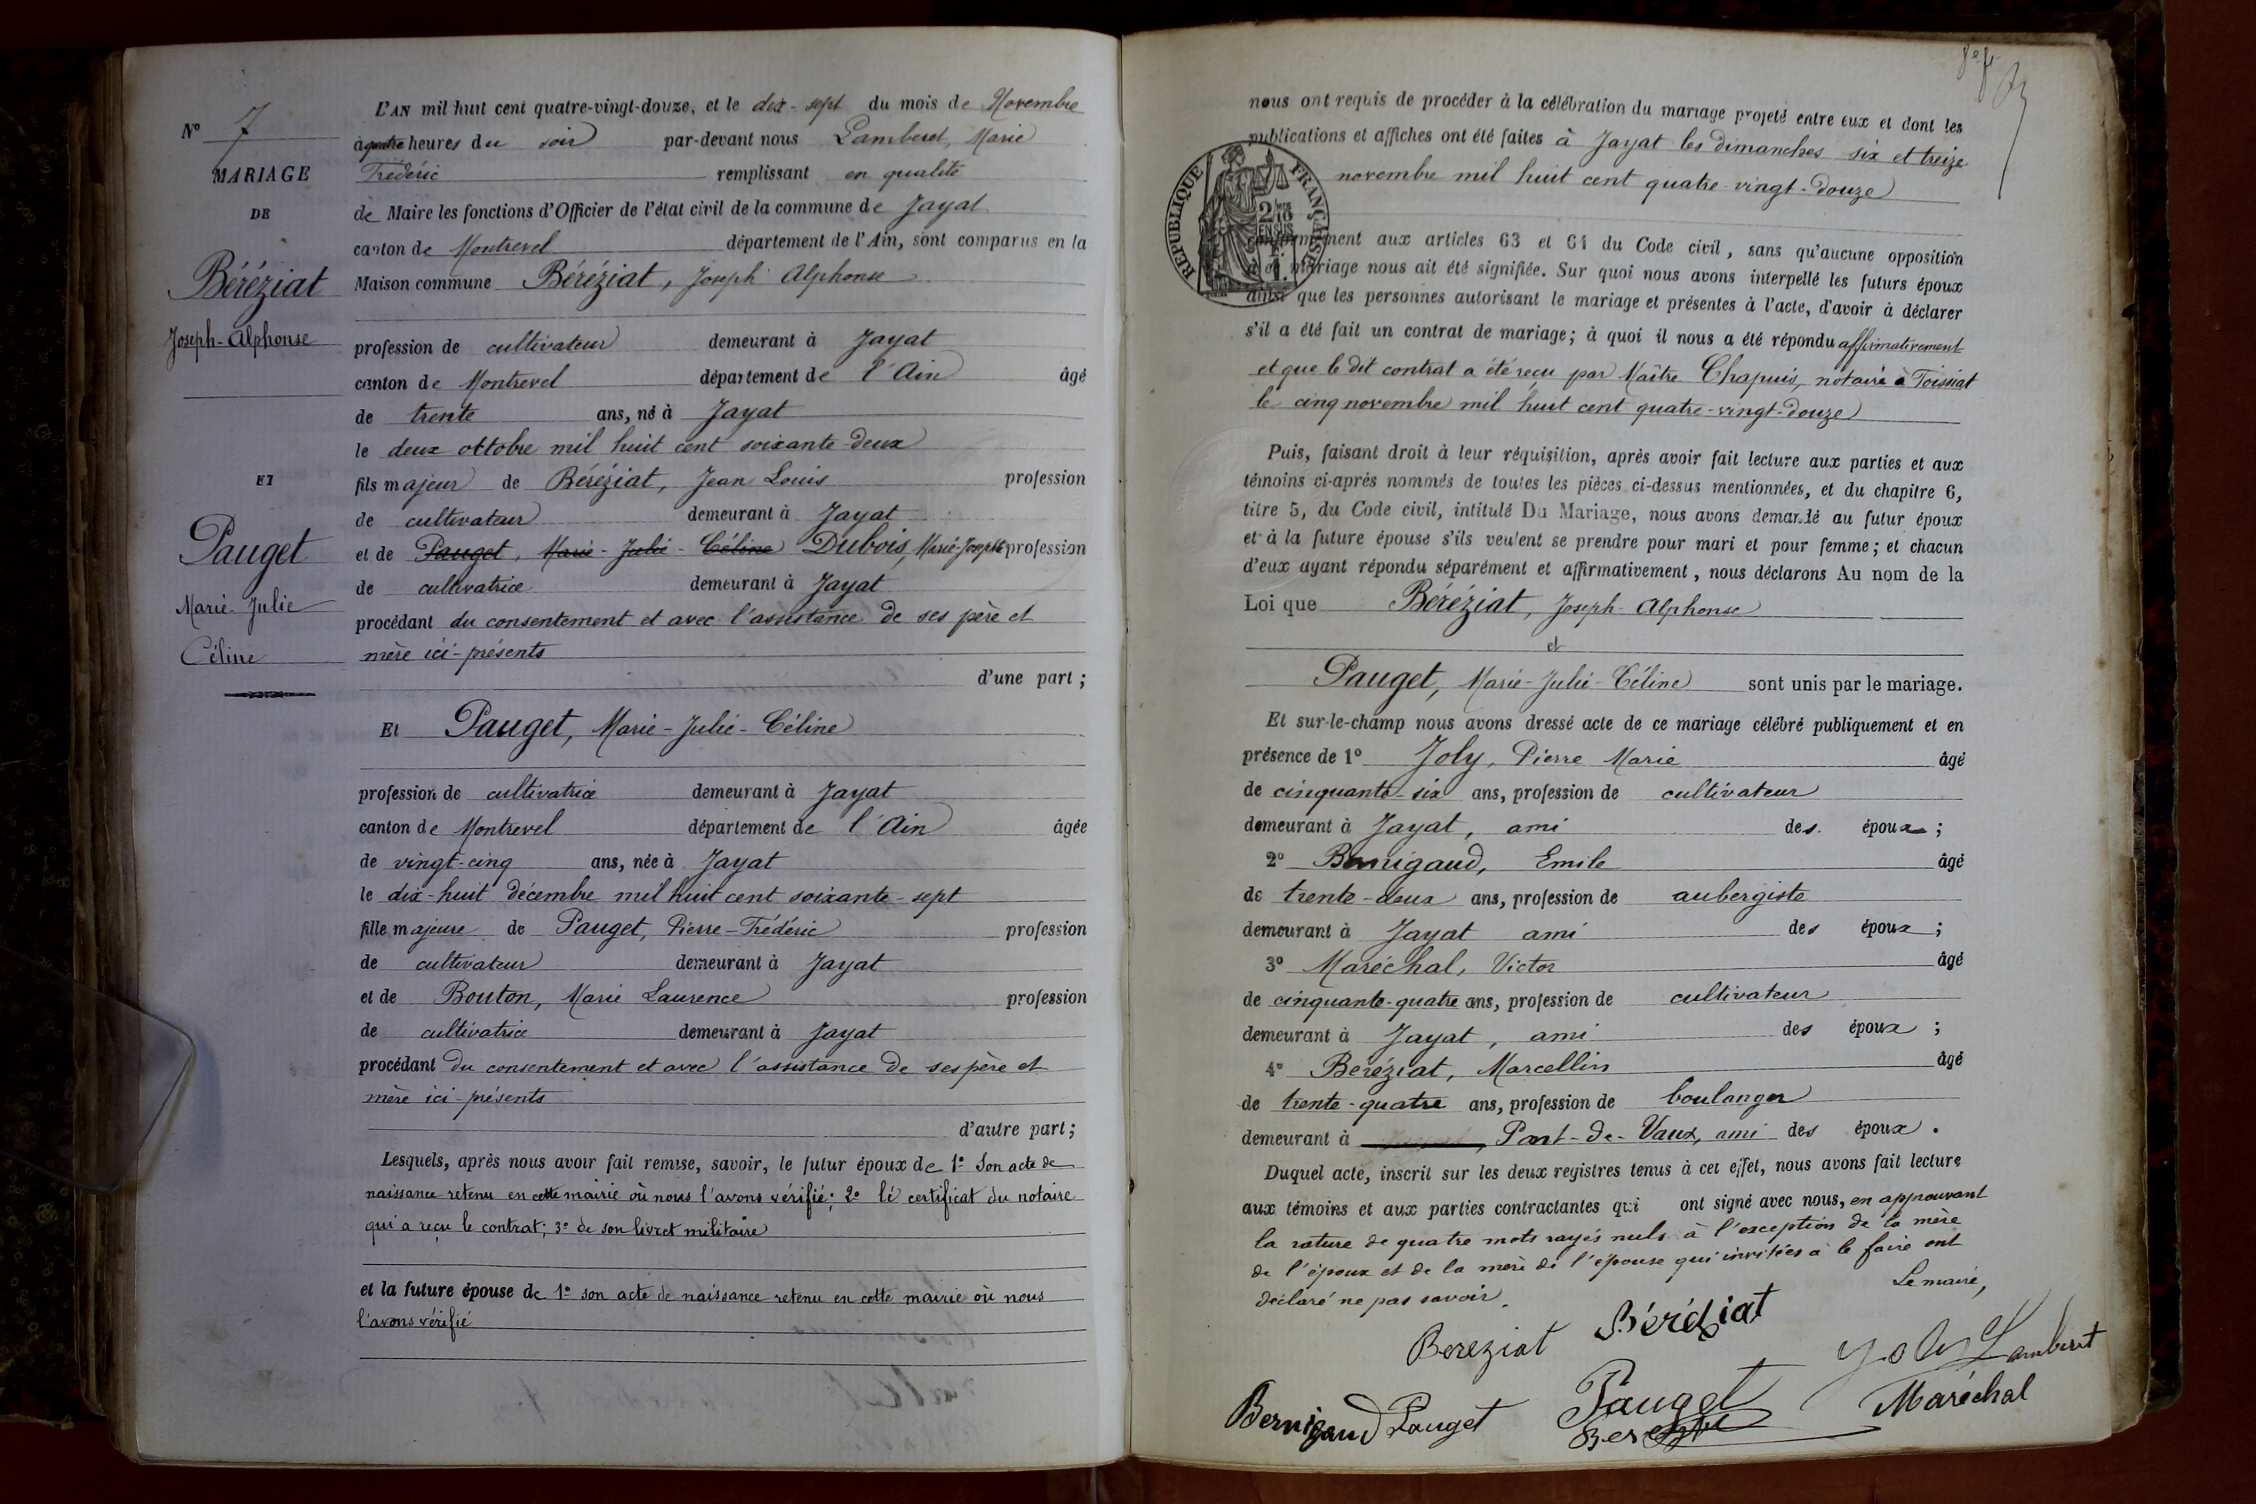 N° 7
MARIAGE
DE
Béréziat
Joseph-Alphonse
ET
Pauget
Marie-Julie
Céline
L'AN mil huit cent quatre-vingt-douze, et le dix-sept du mois de Novembre
à quatre heures du soir par-devant nous Lamberet, Marie
Frédéric remplissant en qualité
de Maire les fonctions d'Officier de l'état civil de la commune de Jayat
canton de Montrevel département de l'Ain, sont comparus en la
Maison commune Béréziat, Joseph Alphonse
profession de cultivateur demeurant à Jayat
canton de Montrevel département de l'Ain âgé
de trente ans, né à Jayat
le deux octobre mil huit cent soixante-deux
fils majeur de Béréziat, Jean Louis profession
de cultivateur demeurant à Jayat
et de Pauget, Marie-Julie-Céline Dubois, Marie-Josephte profession
de cultivatrice demeurant à Jayat
procédant du consentement et avec l'assistance de ses père et
mère ici-présents
d'une part ;
Et Pauget, Marie-Julie-Céline
profession de cultivatrice demeurant à Jayat
canton de Montrevel département de l'Ain âgée
de vingt-cinq ans, née à Jayat
le dix-huit décembre mil huit cent soixante-sept
fille majeure de Pauget, Pierre-Frédéric profession
de cultivateur demeurant à Jayat
et de Bouton, Marie Laurence profession
de cultivatrice demeurant à Jayat
procédant du consentement et avec l'assistance de ses père et
mère ici-présents
d'autre part ;
Lesquels, après nous avoir fait remise, savoir, le futur époux de 1° Son acte de
naissance retenu en cette mairie où nous l'avons vérifié ; 2° le certificat du notaire
qui a reçu le contrat ; 3° de son livret militaire
et la future épouse de 1° son acte de naissance retenu en cette mairie où nous
l'avons vérifié
nous ont requis de procéder à la célébration du mariage projeté entre eux et dont les
publications et affiches ont été faites à Jayat les dimanches six et treize
novembre mil huit cent quatre-vingt-douze
RÉPUBLIQUE FRANÇAISE
2/10 EN SUS
conformément aux articles 63 et 64 du Code civil, sans qu'aucune opposition
à ce mariage nous ait été signifiée. Sur quoi nous avons interpellé les futurs époux
ainsi que les personnes autorisant le mariage et présentes à l'acte, d'avoir à déclarer
s'il a été fait un contrat de mariage ; à quoi il nous a été répondu affirmativement
et que le dit contrat a été reçu par Maître Chapuis, notaire à Foissiat
le cinq novembre mil huit cent quatre-vingt-douze
Puis, faisant droit à leur réquisition, après avoir fait lecture aux parties et aux
témoins ci-après nommés de toutes les pièces ci-dessus mentionnées, et du chapitre 6,
titre 5, du Code civil, intitulé Du Mariage, nous avons demandé au futur époux
et à la future épouse s'ils veulent se prendre pour mari et pour femme ; et chacun
d'eux ayant répondu séparément et affirmativement, nous déclarons Au nom de la
Loi que Béréziat, Joseph-Alphonse
et
Pauget, Marie-Julie-Céline sont unis par le mariage.
Et sur-le-champ nous avons dressé acte de ce mariage célébré publiquement et en
présence de 1° Joly, Pierre Marie âgé
de cinquante-six ans, profession de cultivateur
demeurant à Jayat, ami des époux ;
2° Bernigaud, Emile âgé
de trente-deux ans, profession de aubergiste
demeurant à Jayat ami des époux ;
3° Maréchal, Victor âgé
de cinquante-quatre ans, profession de cultivateur
demeurant à Jayat, ami des époux ;
4° Beréziat, Marcellin âgé
de trente-quatre ans, profession de boulanger
demeurant à Pont-de-Vaux, ami des époux.
Duquel acte, inscrit sur les deux registres tenus à cet effet, nous avons fait lecture
aux témoins et aux parties contractantes qui ont signé avec nous, en approuvant
la rature de quatre mots rayés nuls à l'exception de la mère
de l'époux et de la mère de l'épouse qui invitées à le faire ont
déclaré ne pas savoir.
Le maire,
Bereziat Béréziat Joly Lamberet
Bernigaud Pauget Pauget Maréchal